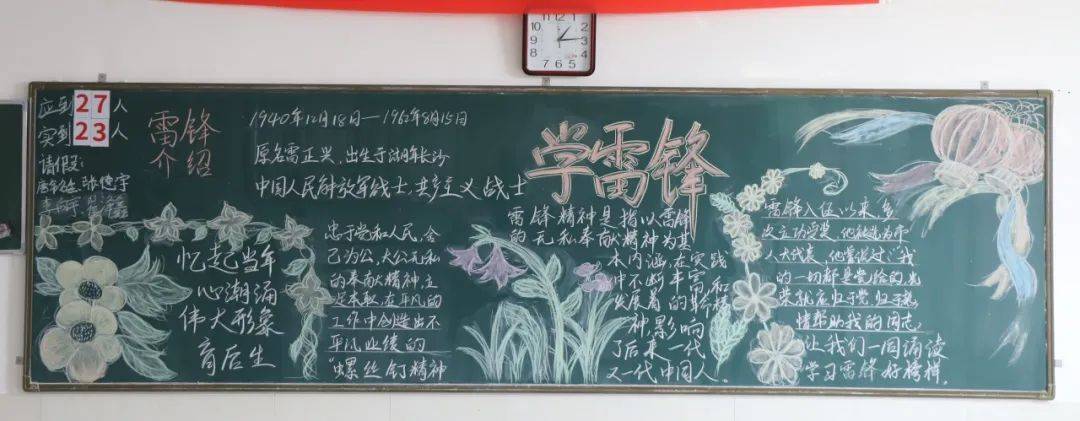 应到27人
实到23人
请假:
雷锋
介绍
1940年12月18日—1962年8月15日
原名雷正兴,出生于湖南长沙
中国人民解放军战士,共产主义战士
忆起当年
心潮涌
伟大形象
育后生
忠于党和人民,舍
己为公,大公无私
的奉献精神,立
足本职,在平凡的
工作中创造出不
平凡业绩的
“螺丝钉精神
学雷锋
雷锋精神是指以雷锋
的无私奉献精神为基
本内涵,在实践
中不断丰富和
发展着的革命精
神,影响
了后来一代
又一代中国人。
雷锋入伍以来,多
次立功受奖,他被选为市
人大代表,他常说过:“我
的一切都是党给的,光
荣就应归于党,归于热
情帮助我的同志,
让我们一同诵读
学习雷锋好榜样,
12
1
2
3
4
5
6
7
8
9
10
11